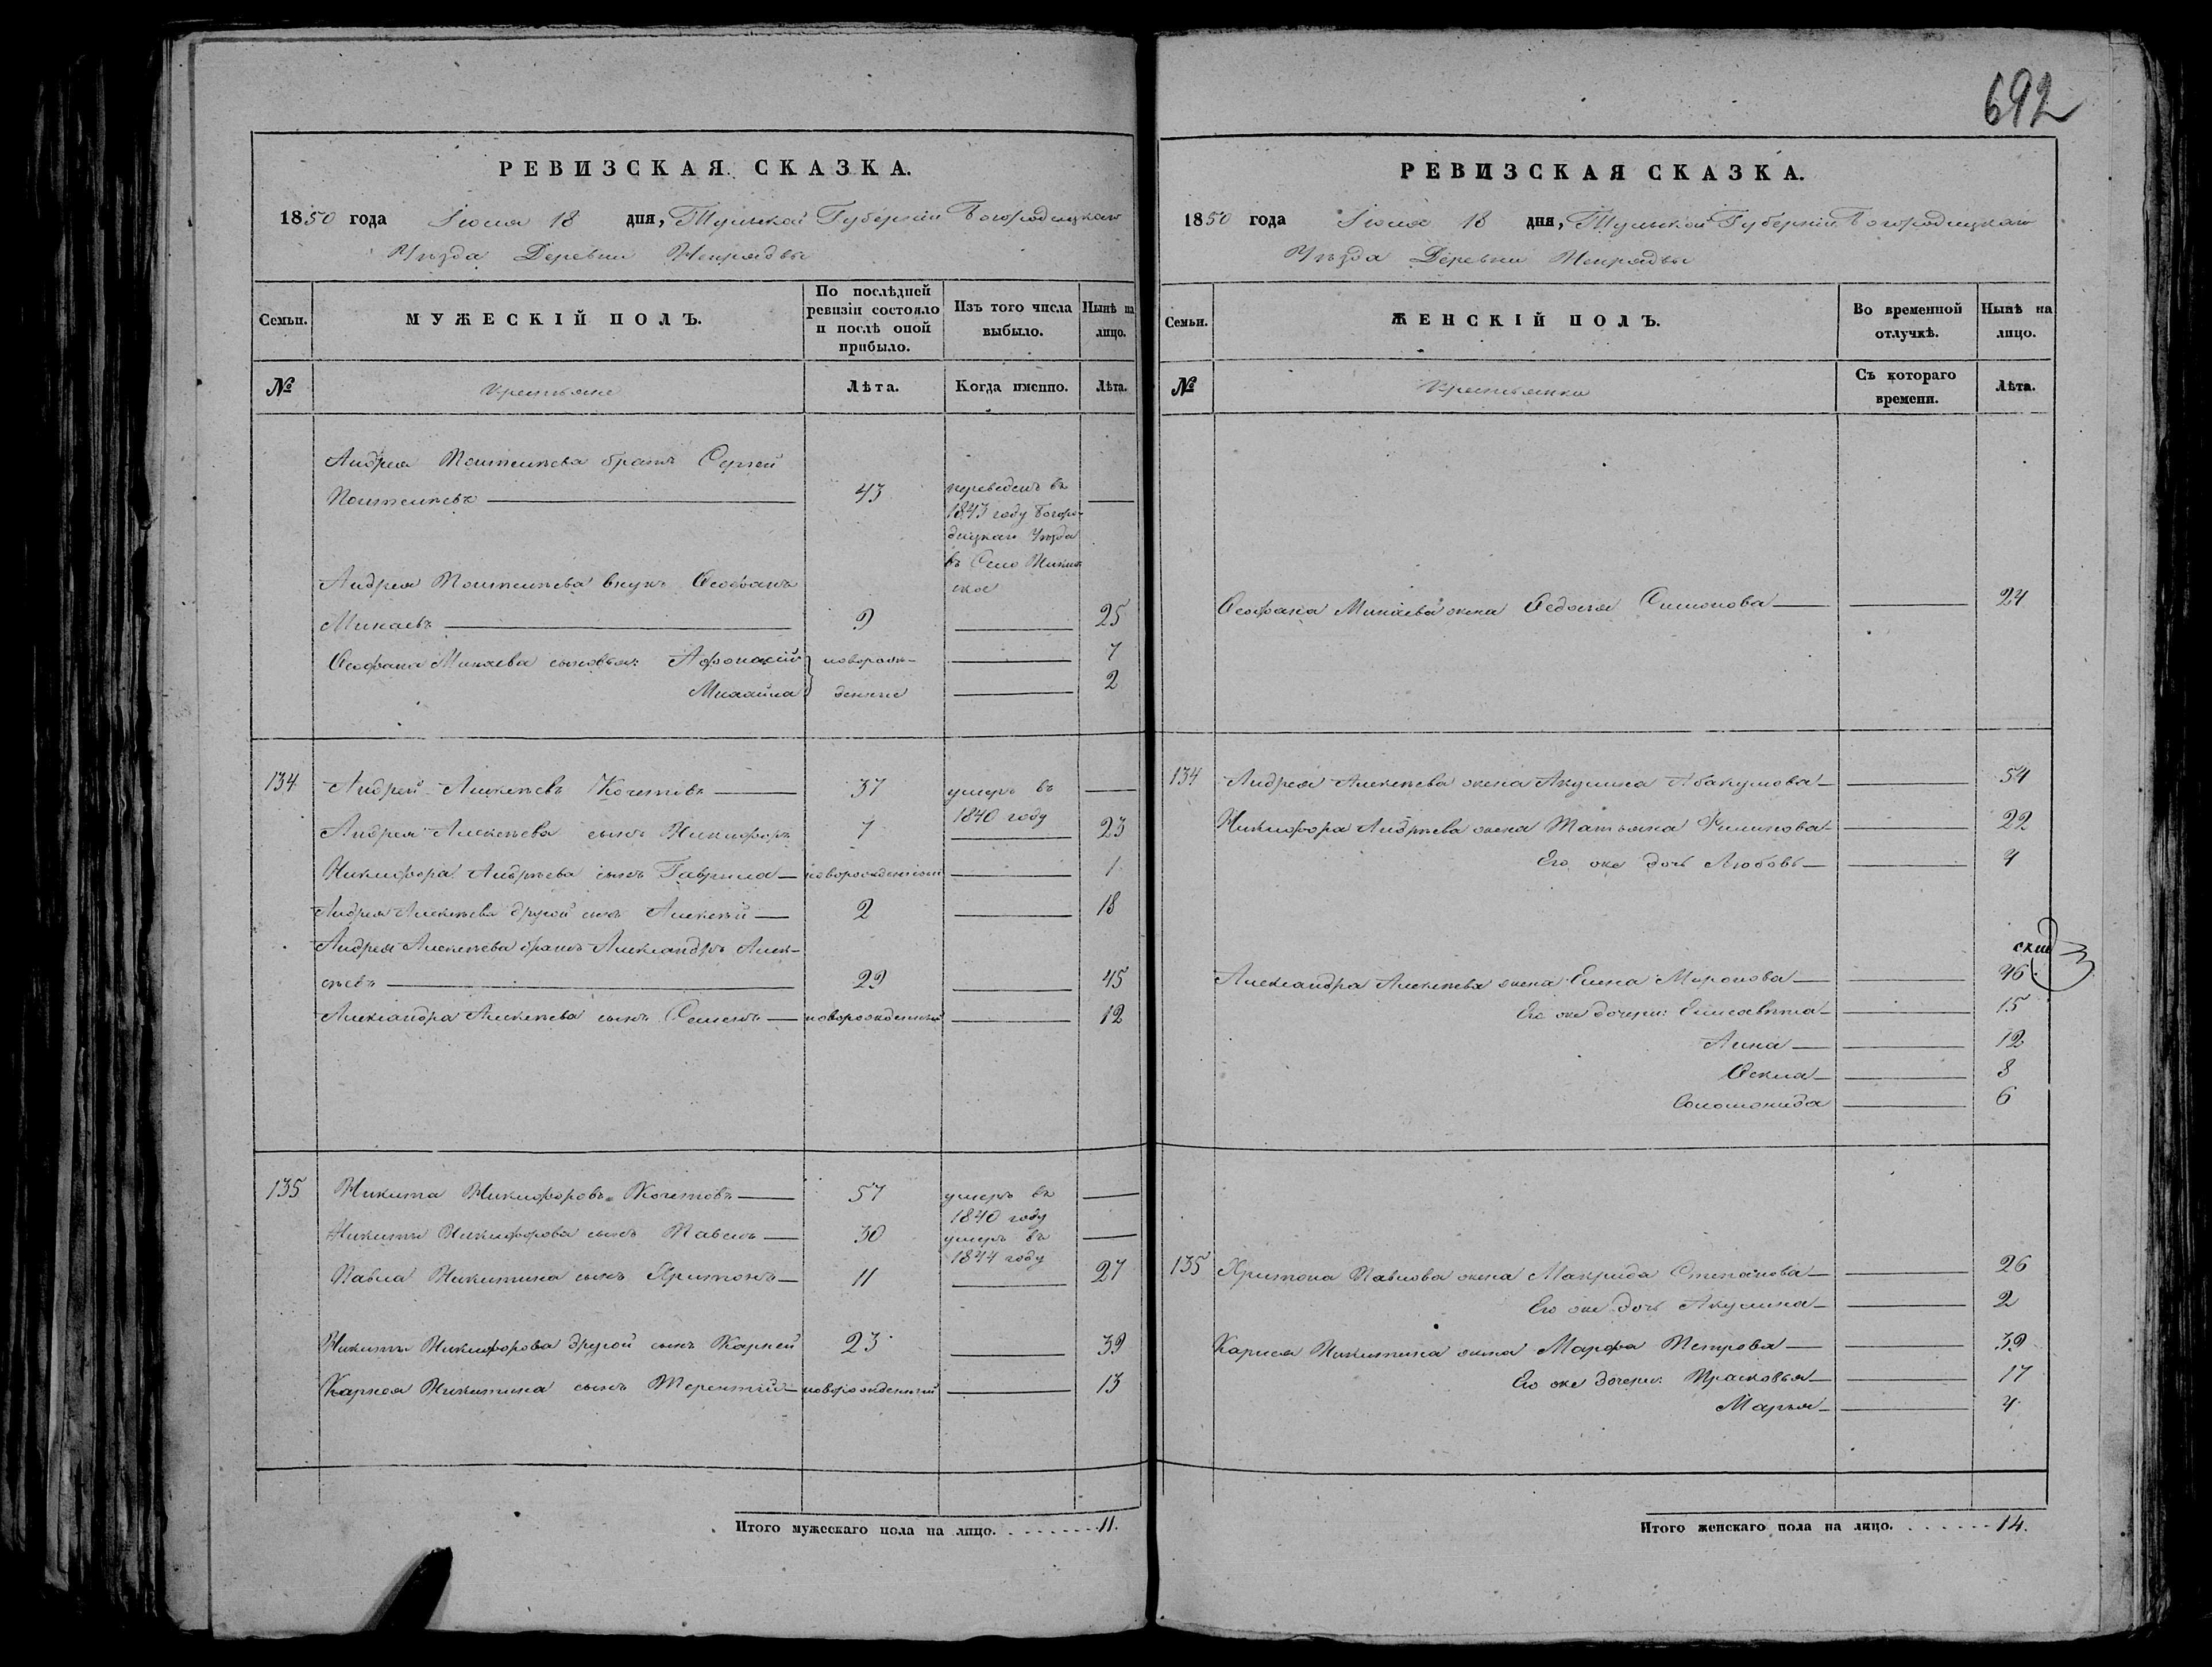 692
РЕВИЗСКАЯ СКАЗКА.
1850 года Іюля 18 дня, Тульской Губерніи Богородицкаго
Уѣзда Деревни Непрядвы
Семьи.
МУЖЕСКІЙ ПОЛЪ.
По послѣдней ревизіи состояло и послѣ оной прибыло.
Изъ того числа выбыло.
Нынѣ на лицо.
№
Крестьяне
Лѣта.
Когда именно.
Лѣта.
Андрея братъ Сергей
43 переведенъ въ
1843 году Богоро-
дицкаго Уѣзда
въ Село
ское
Андрея внукъ Ѳеофанъ
Минаевъ 9 25
Ѳеофана Минаева сыновья: Афонасій новорож- 7
Михайла денные 2
134 Андрей Алексѣевъ Кочетовъ 37 умеръ въ
1840 году
Андрея Алексѣева сынъ Никифоръ 7 23
Никифора Андрѣева сынъ Гаврила новорожденный 1
Андрея Алексѣева другой сынъ Алексѣй 2 18
Андрея Алексѣева братъ Александръ Алек-
сѣевъ 29 45
Александра Алексѣева сынъ Семенъ новорожденный 12
135 Никита Никифоровъ Кочетовъ 57 умеръ въ
1840 году
Никиты Никифорова сынъ Павелъ 30 умеръ въ
1844 году
Павла Никитина сынъ Харитонъ 11 27
Никиты Никифорова другой сынъ Карней 23 39
Карнея Никитина сынъ Терентий новорожденный 13
Итого мужескаго пола на лицо. 11.
РЕВИЗСКАЯ СКАЗКА.
1850 года Іюля 18 дня, Тульской Губерніи Богородицкаго
Уѣзда Деревни Непрядвы
Семьи.
ЖЕНСКІЙ ПОЛЪ.
Во временной отлучкѣ.
Нынѣ на лицо.
№
Крестьянки
Съ котораго времени.
Лѣта.
Ѳеофана Минаева жена Ѳедосья Симонова 24
134 Андрея Алексѣева жена Акулина Абакумова 54
Никифора Андрѣева жена Татьяна Филипова 22
Его же дочь Любовь 4
Александра Алексѣева жена Елена Миронова 46
Его же дочери: Елисавѣта 15
Анна 12
Ѳекла 8
Соломонида 6
135 Харитона Павлова жена Макрида Степанова 26
Его же дочь Акулина 2
Карнея Никитина жена Марфа Петрова 39
Его же дочери: Прасковья 17
Марья 4
Итого женскаго пола на лицо. 14.